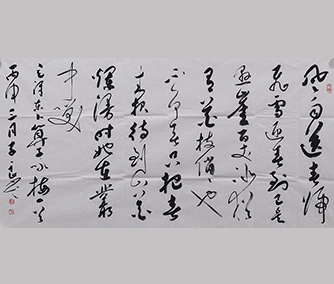 风雨送春归
飞雪迎春到已是
悬崖百丈冰犹
有花枝俏俏也
不争春只把春
来报待到山花
烂漫时她在丛
中笑
毛泽东卜算子咏梅一首
丙申